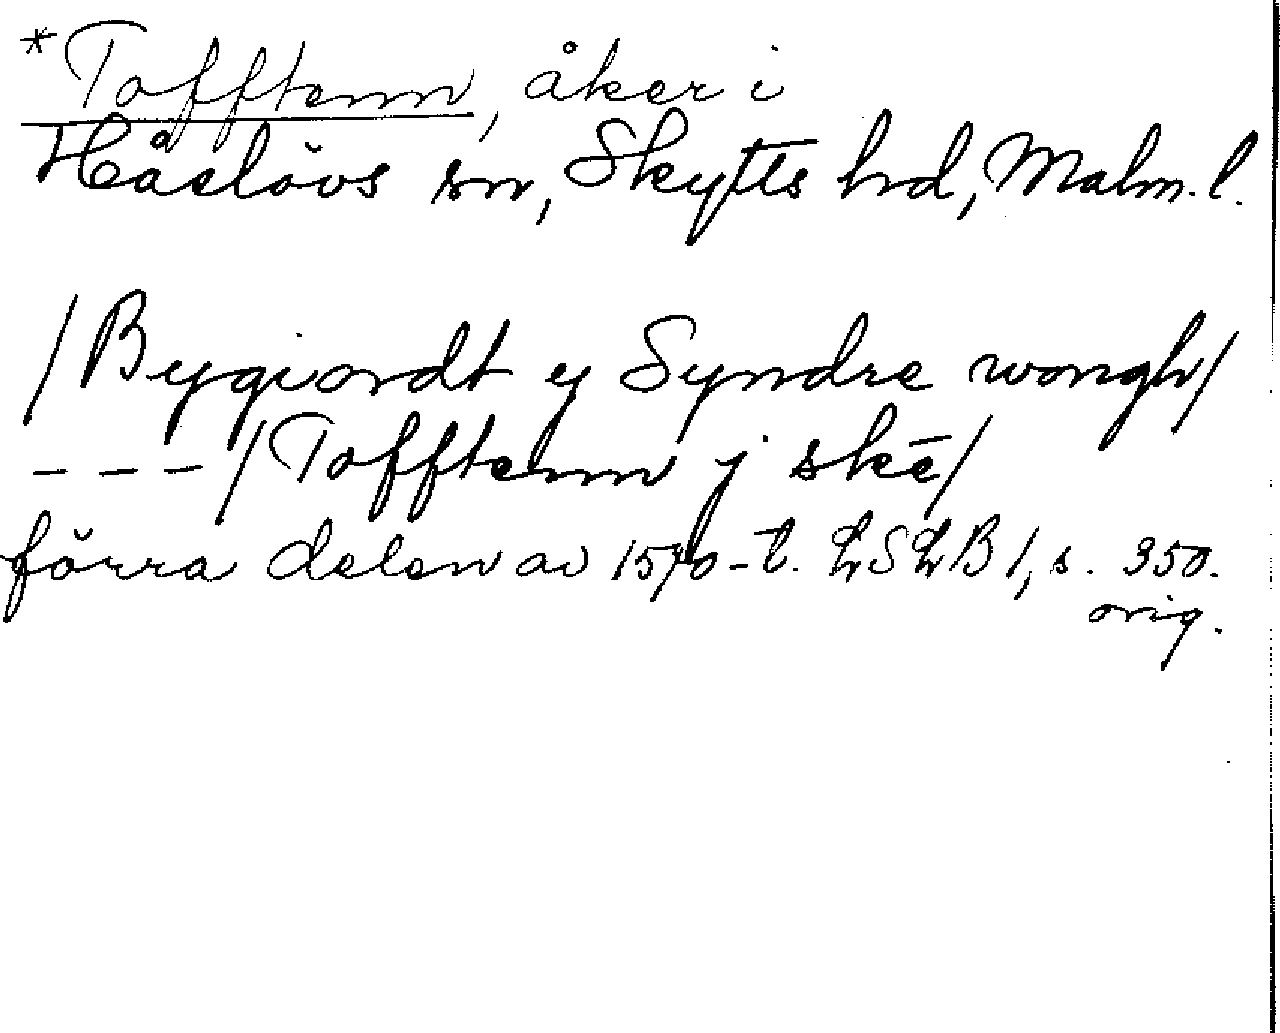 *Tofftenn, åker i
Håslövs sn, Skytts hd, Malm. l.
/Bygiordt y Syndre wongh/
- - - /Tofftenn j skē/
förra delen av 1570-t. LSLB 1, s. 350.
orig.